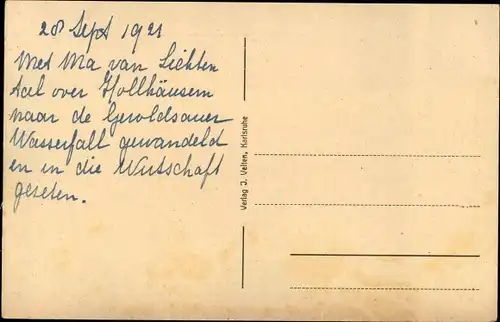 28 Sept 1921
Met Ma van Lichten
tael over Gollhäusern
naar de Geroldsauer
Wasserfall gewandeld
en in die Wirtschaft
geseten.
Verlag J. Velten, Karlsruhe